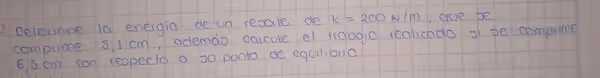 Determine la energía de un resorte de k = 200 N/m, que se
comprime 5,1 cm, además calcule el trabajo realizado si se comprime
6,3 cm con respecto a su punto de equilibrio